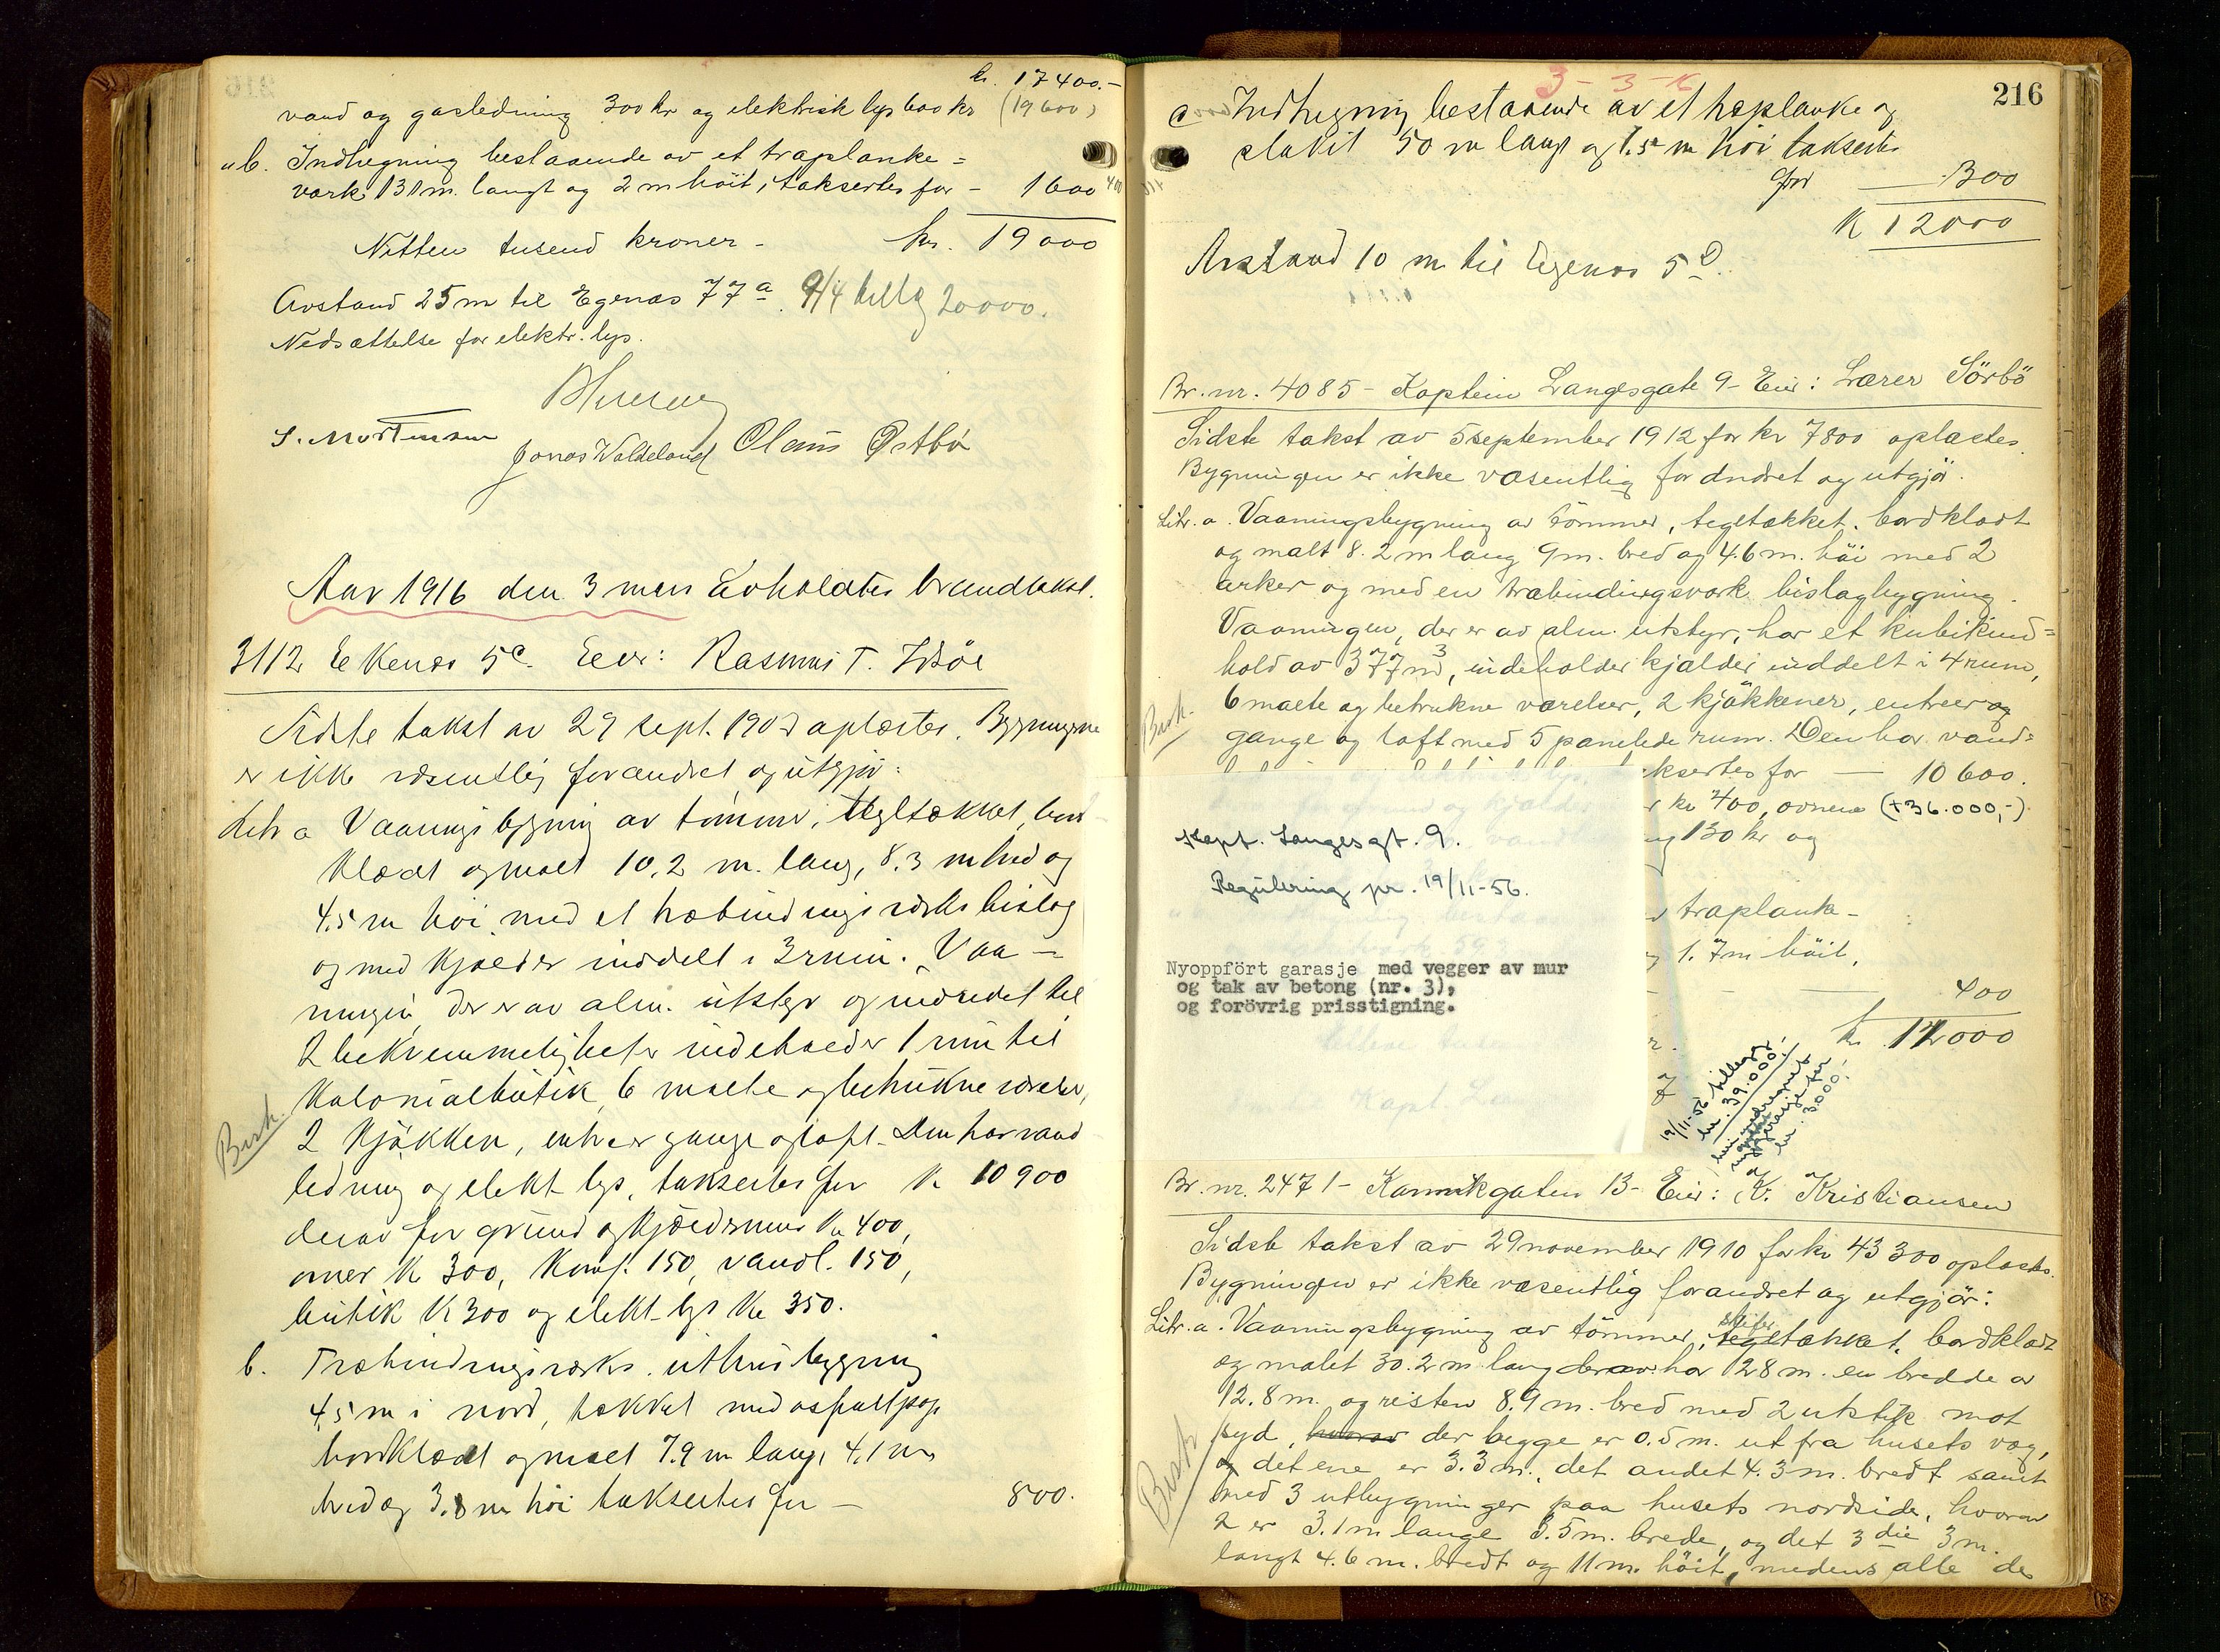 kr. 17400.-
vand og gasledning 300 kr og elektrisk lys 600 kr (19600)
" b. Indhegning bestaaende av et træplanke=
værk 131 m. langt og 2 m höit, taksertes for - 1600
Nitten tusend kroner - kr. 19000
Avstand 25 m til Egenæs 77a. 9/4 tillæg 20000.
Nedsættelse for elektr. lys.
S. Mortensen Jonas Waldeland Olaus Østbø
Aar 1916 den 3 mars avholdtes brandtakst.
3112 Ekenæs 5c. Eier: Rasmus T.
Sidste takst av 29 sept. 190 oplæstes. Bygningerne
er ikke væsentlig forandret og utgjør:
Litr a Vaaningsbygning av tømmer, tegltækket, bord
klædt og malt 10,2 m. lang, 8,3 m bred og
4,5 m høi med et træbindingsverks bislag
og med kjælder inddelt i 3 rum. Vaa-
ningen der er av alm. utstyr og indredet til
2 bekvemmeligheter indeholder 1 rum til
Kolonialbutik, 6 malte og betrukne værelser,
2 kjøkken, entreer gange og loft. Den har vand
Besk.
ledning og elekt lys, taksertes for kr 10900
derav for grund og kjældermur kr 400,
ovner kr 300, komf. 150, vandl. 150,
butik kr 300 og elekt lys kr 350.
b. Træbindingsværks uthusbygning
4,5 m i nord, tækket med asfaltpap
bordklædt og malt 7.9 m lang, 4,1 m
bred og 3,8 m høi taksertes for - 800.
216
3 - 3 - 16
c Indhegning bestaaende av et træplanke og
stakit 50 m langt og 1.5 m höi taksertes
for - 300
K 12000
Avstand 10 m til Egenæs 5d.
Br. nr. 4085 - Kaptein Langesgate 9 - Eier: Lærer Sörbö
Sidste takst av 5 september 1912 for kr 7800 oplæstes.
Bygningen er ikke væsentlig forandret og utgjör.
Litr. a. Vaaningsbygning av tömmer, tegltækket, bordklædt
og malt 8.2 m lang 9 m. bred og 4.6 m. höi med 2
arker og med en træbindingsværk bislagbygning.
Vaaningen, der er av alm. utstyr, har et kubikind=
hold av 377 m3, indeholder kjælder inddelt i 4 rum,
6 malte og betrukne værelser, 2 kjökkener, entreer og
Besk.
gange og loft med 5 panelede rum. Den har vand=
ksertes for - 10600.
r kr 400, ovnene (+36.000,-)
130 kr og
Kapt. Langesgt. 9.
Regulering pr. 19/11-56.
træplanke-
1.7 m höit,
Nyoppfört garasje med vegger av mur
og tak av betong (nr. 3),
og forövrig prisstigning.
400
kr 12000
19/11-56 tillegg
kr. 39.000.-
heri medregnet
garasje for
kr. 3000.-
Br. nr. 2471 - Kannikgaten 13 - Eier: Kr. Kristiansen
Sidste takst av 29 november 1910 for kr 43300 oplæstes.
Bygningen er ikke væsentlig forandret og utgjör:
Litr. a. Vaaningsbygning av tömmer, skifer tegltækket, bordklædt
og malet 30.2 m lang derav har 12 8 m. en bredde av
12.8 m. og resten 8.9 m. bred med 2 utstik mot
syd, hvorav der begge er 0.5 m. ut fra husets væg,
og det ene er 3.3 m., det andet 4.3 m. bredt samt
Besk
med 3 utbygninger paa husets nordside, hvorav
2 er 3.1 m lange 3.5 m. brede, og det 3die 3 m.
langt 4.6 m. bredt og 11 m. höit, medens alle de